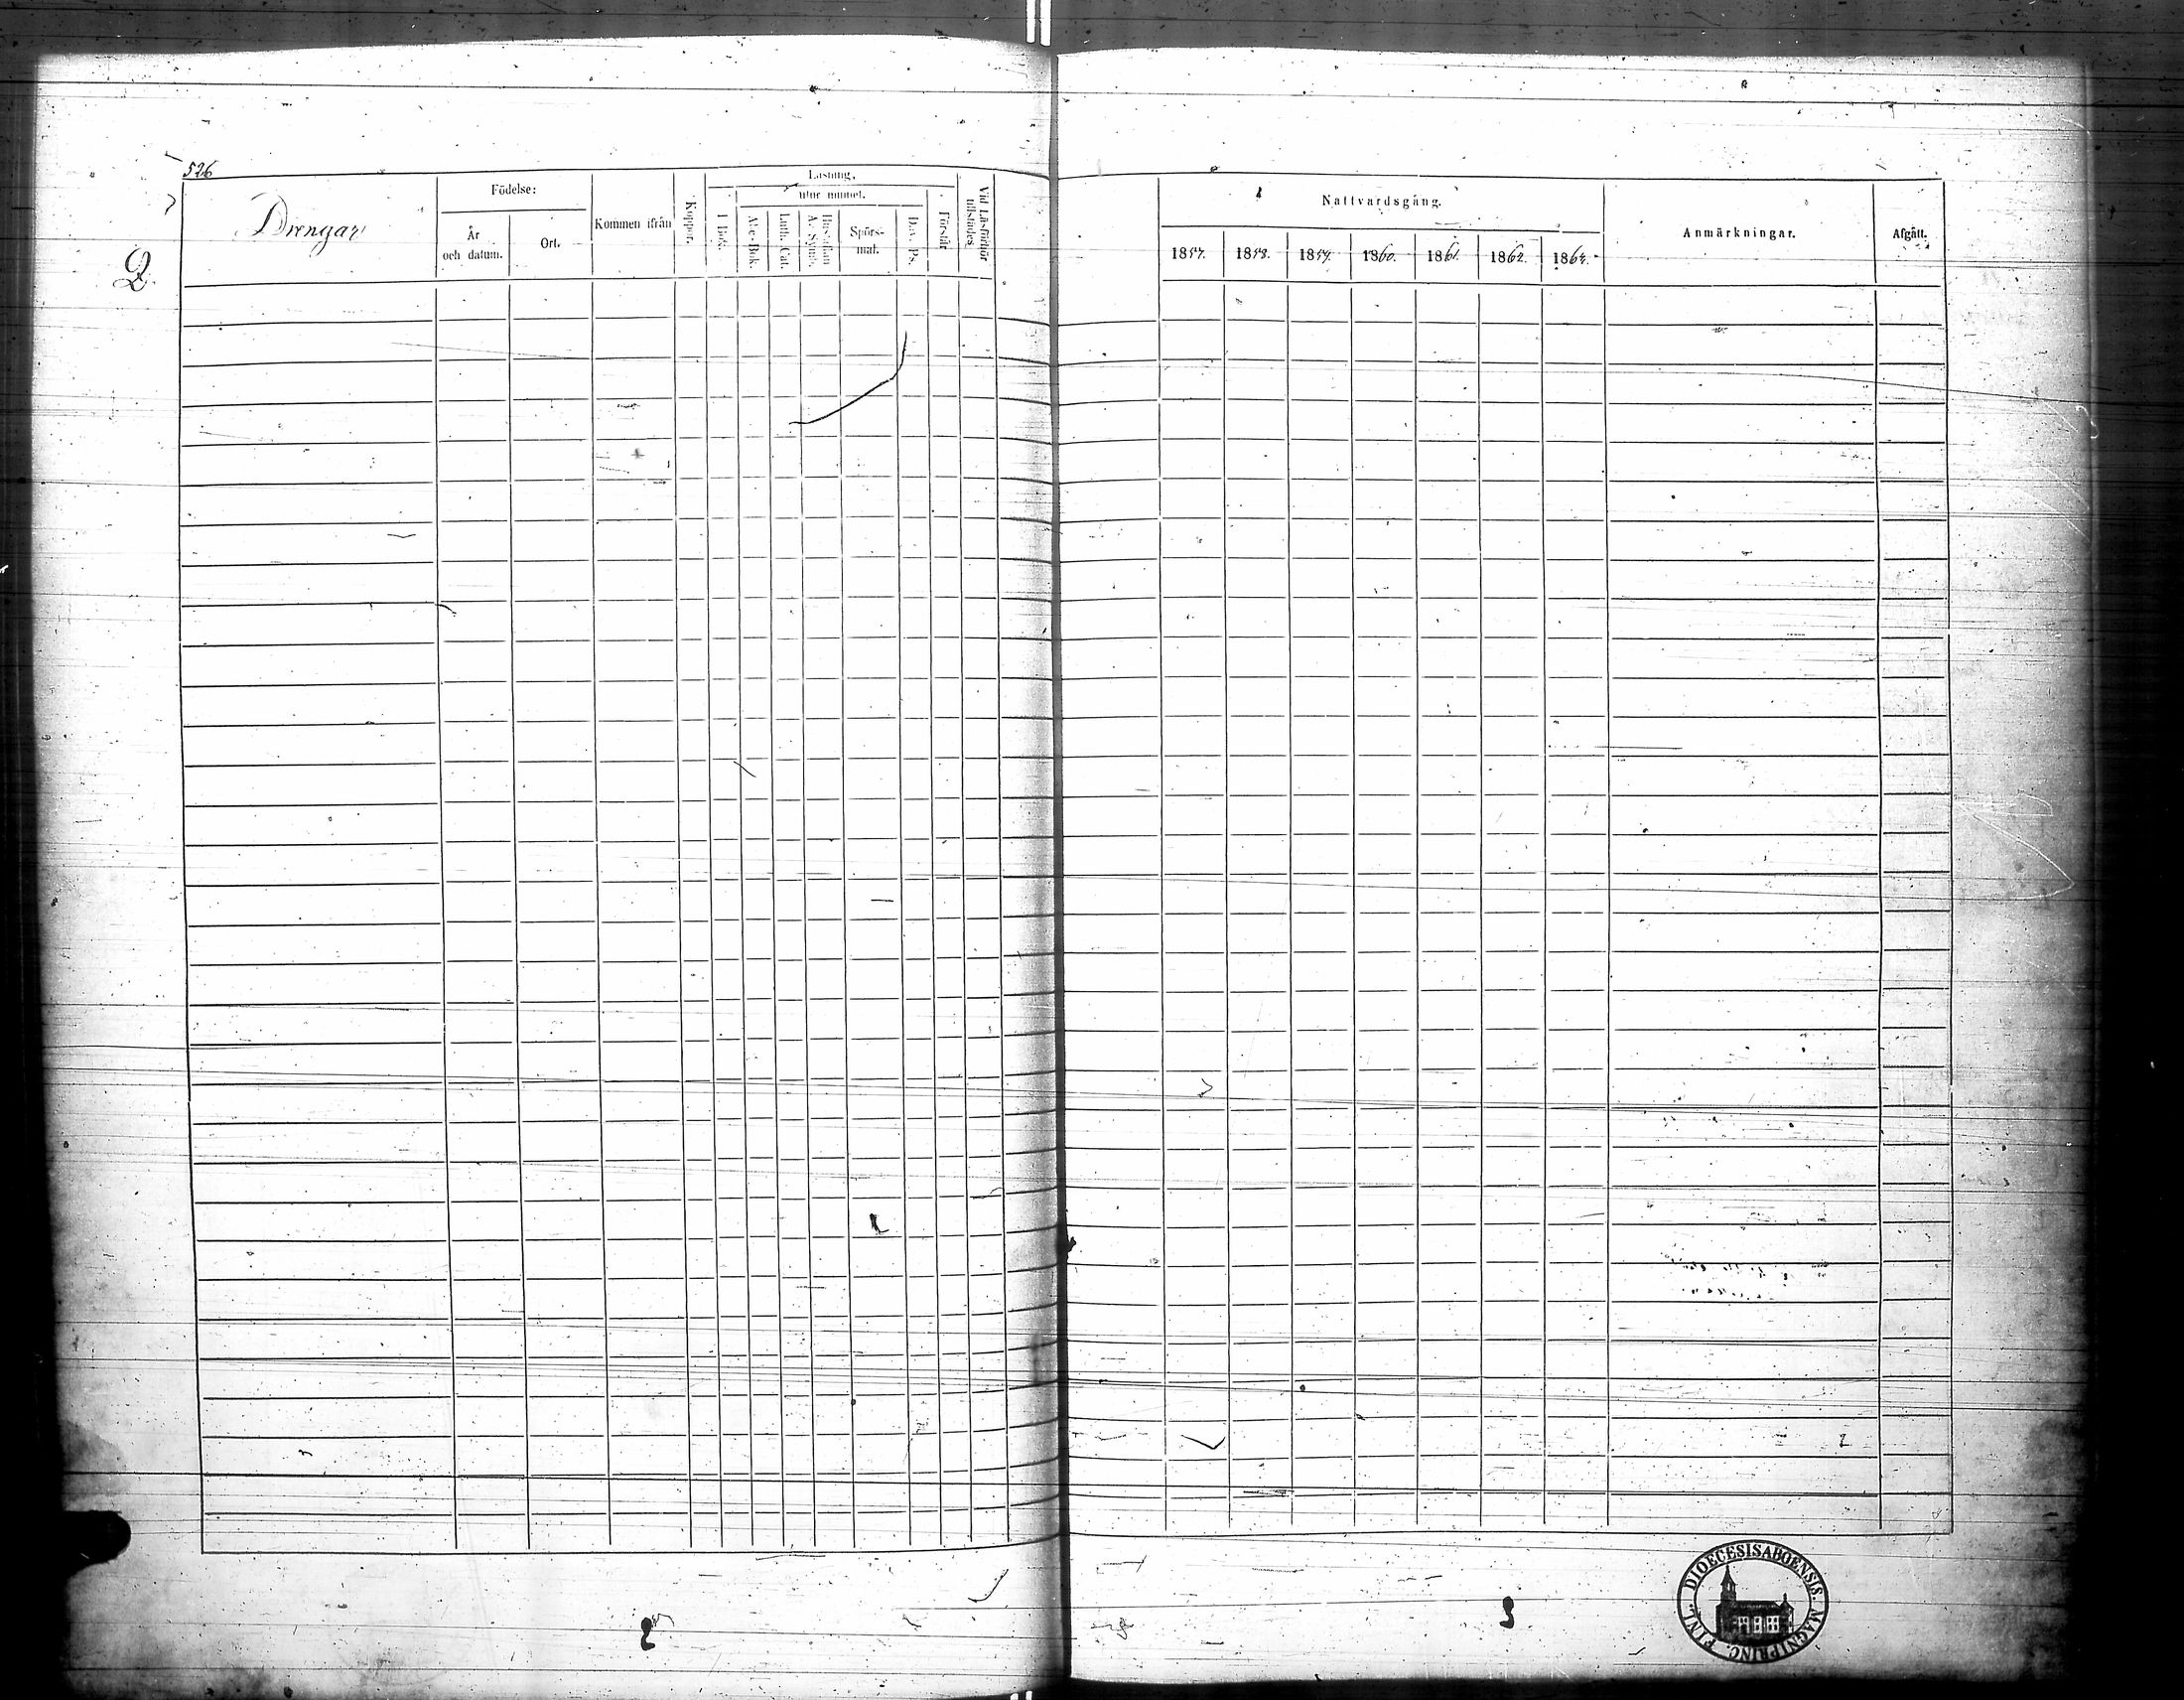 526
Drengar
Q
Födelse:
År
och datum.
Ort.
Kommen ifrån
Koppor.
Läsning.
utur minnet.
I Bok.
Abc-Bok.
Luth. Cat.
Hustaflan
A. Symb.
Spörs-
mål.
Dav. Ps.
Förstår
Vid Läsförhör
tillstädes
Nattvardsgång.
1857.
1858.
1859.
1860.
1861.
1862.
1863.
Anmärkningar.
Afgått.
DIOECESISABOENSIS. MAGNIPRINC. FINL.